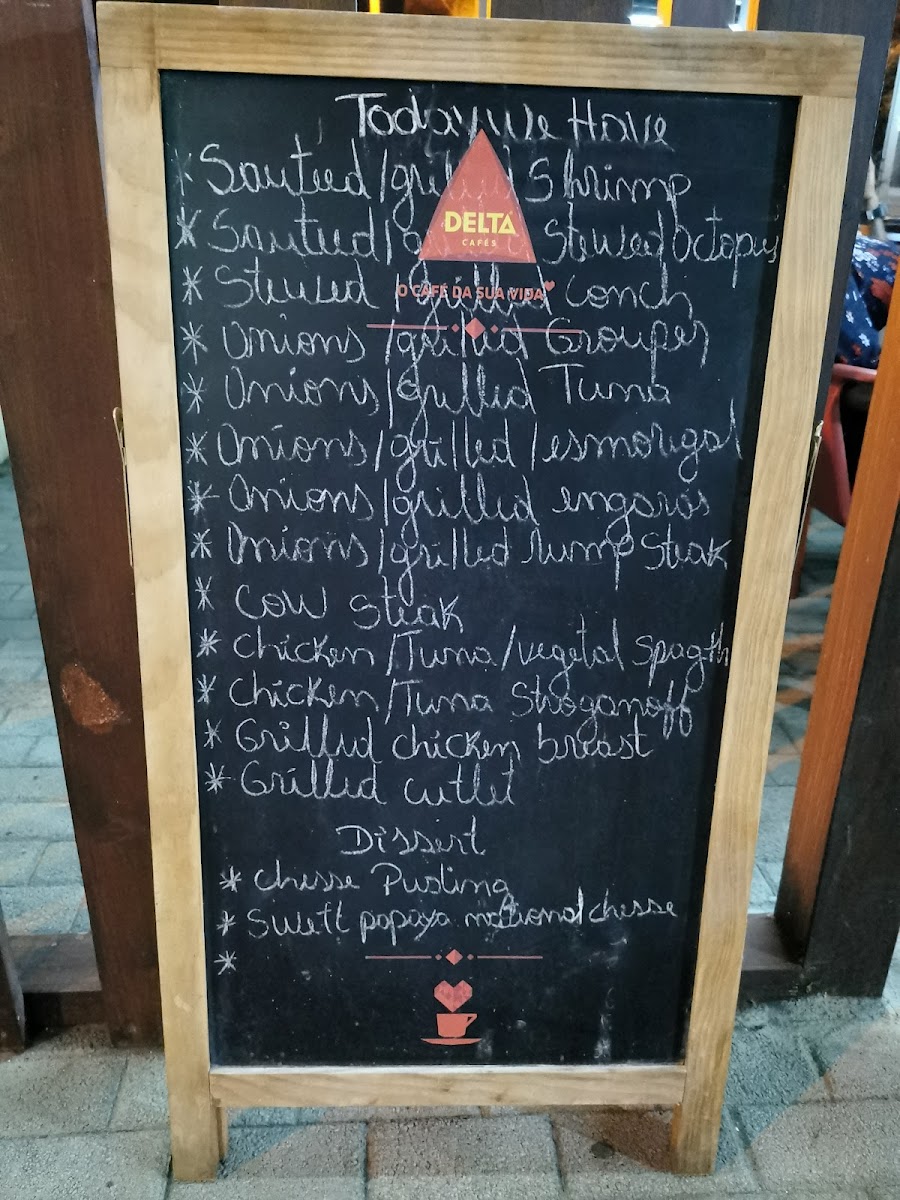 Today We Have
* Sauteed/grilled Shrimp
* Sauteed/grilled Stewed Octopus
DELTA
CAFÉS
* Stewed /grilled conch
O CAFÉ DA SUA VIDA
* Onions /grilled Grouper
* Onions/grilled Tuna
* Onions/grilled/esmorigal
* Onions/grilled engaros
* Onions/grilled rump Steak
* Cow steak
* Chicken/Tuna/vegetal spagth
* Chicken/Tuna Stroganoff
* Grilled chicken breast
* Grilled cutlet
Dissert
* chesse Puding
* Swett papaya national chesse
*